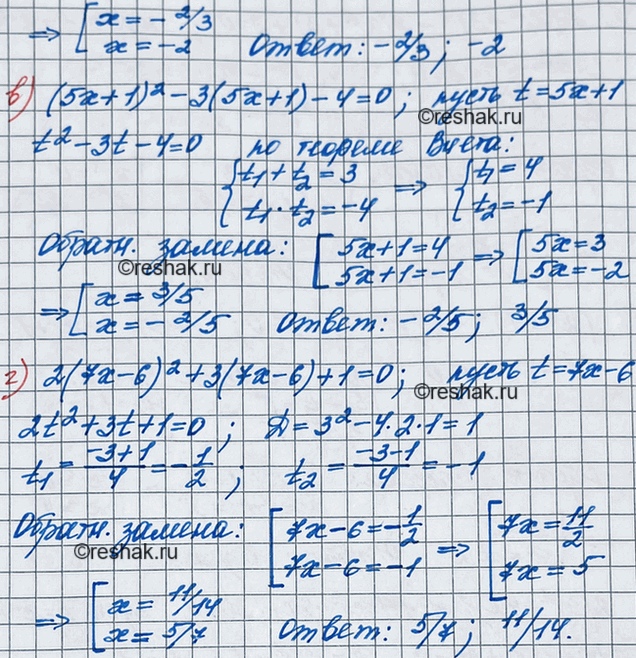 ⇒ [ x = - 2/3
x = -2 Ответ: -2/3; -2
в) (5x+1)² - 3(5x+1) - 4 = 0; пусть t = 5x+1
©reshak.ru
t² - 3t - 4 = 0 по теореме Виета:
{ t₁ + t₂ = 3 ⇒ { t₁ = 4
t₁ · t₂ = -4 t₂ = -1
Обратн. замена: [ 5x+1 = 4 ⇒ [ 5x = 3
5x+1 = -1 5x = -2
©reshak.ru
⇒ [ x = 3/5
x = - 2/5 Ответ: -2/5; 3/5
г) 2(7x-6)² + 3(7x-6) + 1 = 0; пусть t = 7x-6
©reshak.ru
2t² + 3t + 1 = 0; D = 3² - 4·2·1 = 1
t₁ = (-3+1)/4 = -1/2; t₂ = (-3-1)/4 = -1
Обратн. замена: [ 7x-6 = -1/2 ⇒ [ 7x = 11/2
7x-6 = -1 7x = 5
©reshak.ru
⇒ [ x = 11/14
x = 5/7 Ответ: 5/7; 11/14.